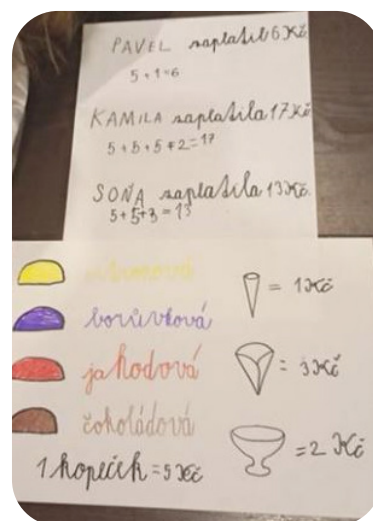 PAVEL zaplatil 6 Kč
5 + 1 = 6
KAMILA zaplatila 17 Kč
5 + 5 + 5 + 2 = 17
SOŇA zaplatila 13 Kč.
5 + 5 + 3 = 13
citronová
= 1 Kč
borůvková
jahodová
= 3 Kč
čokoládová
= 2 Kč
1 kopeček = 5 Kč